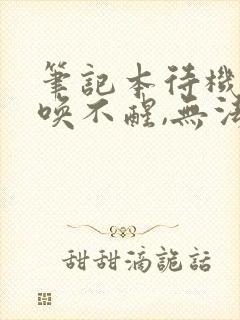 筆記本待機
喚不醒,無法
甜甜滴詭話